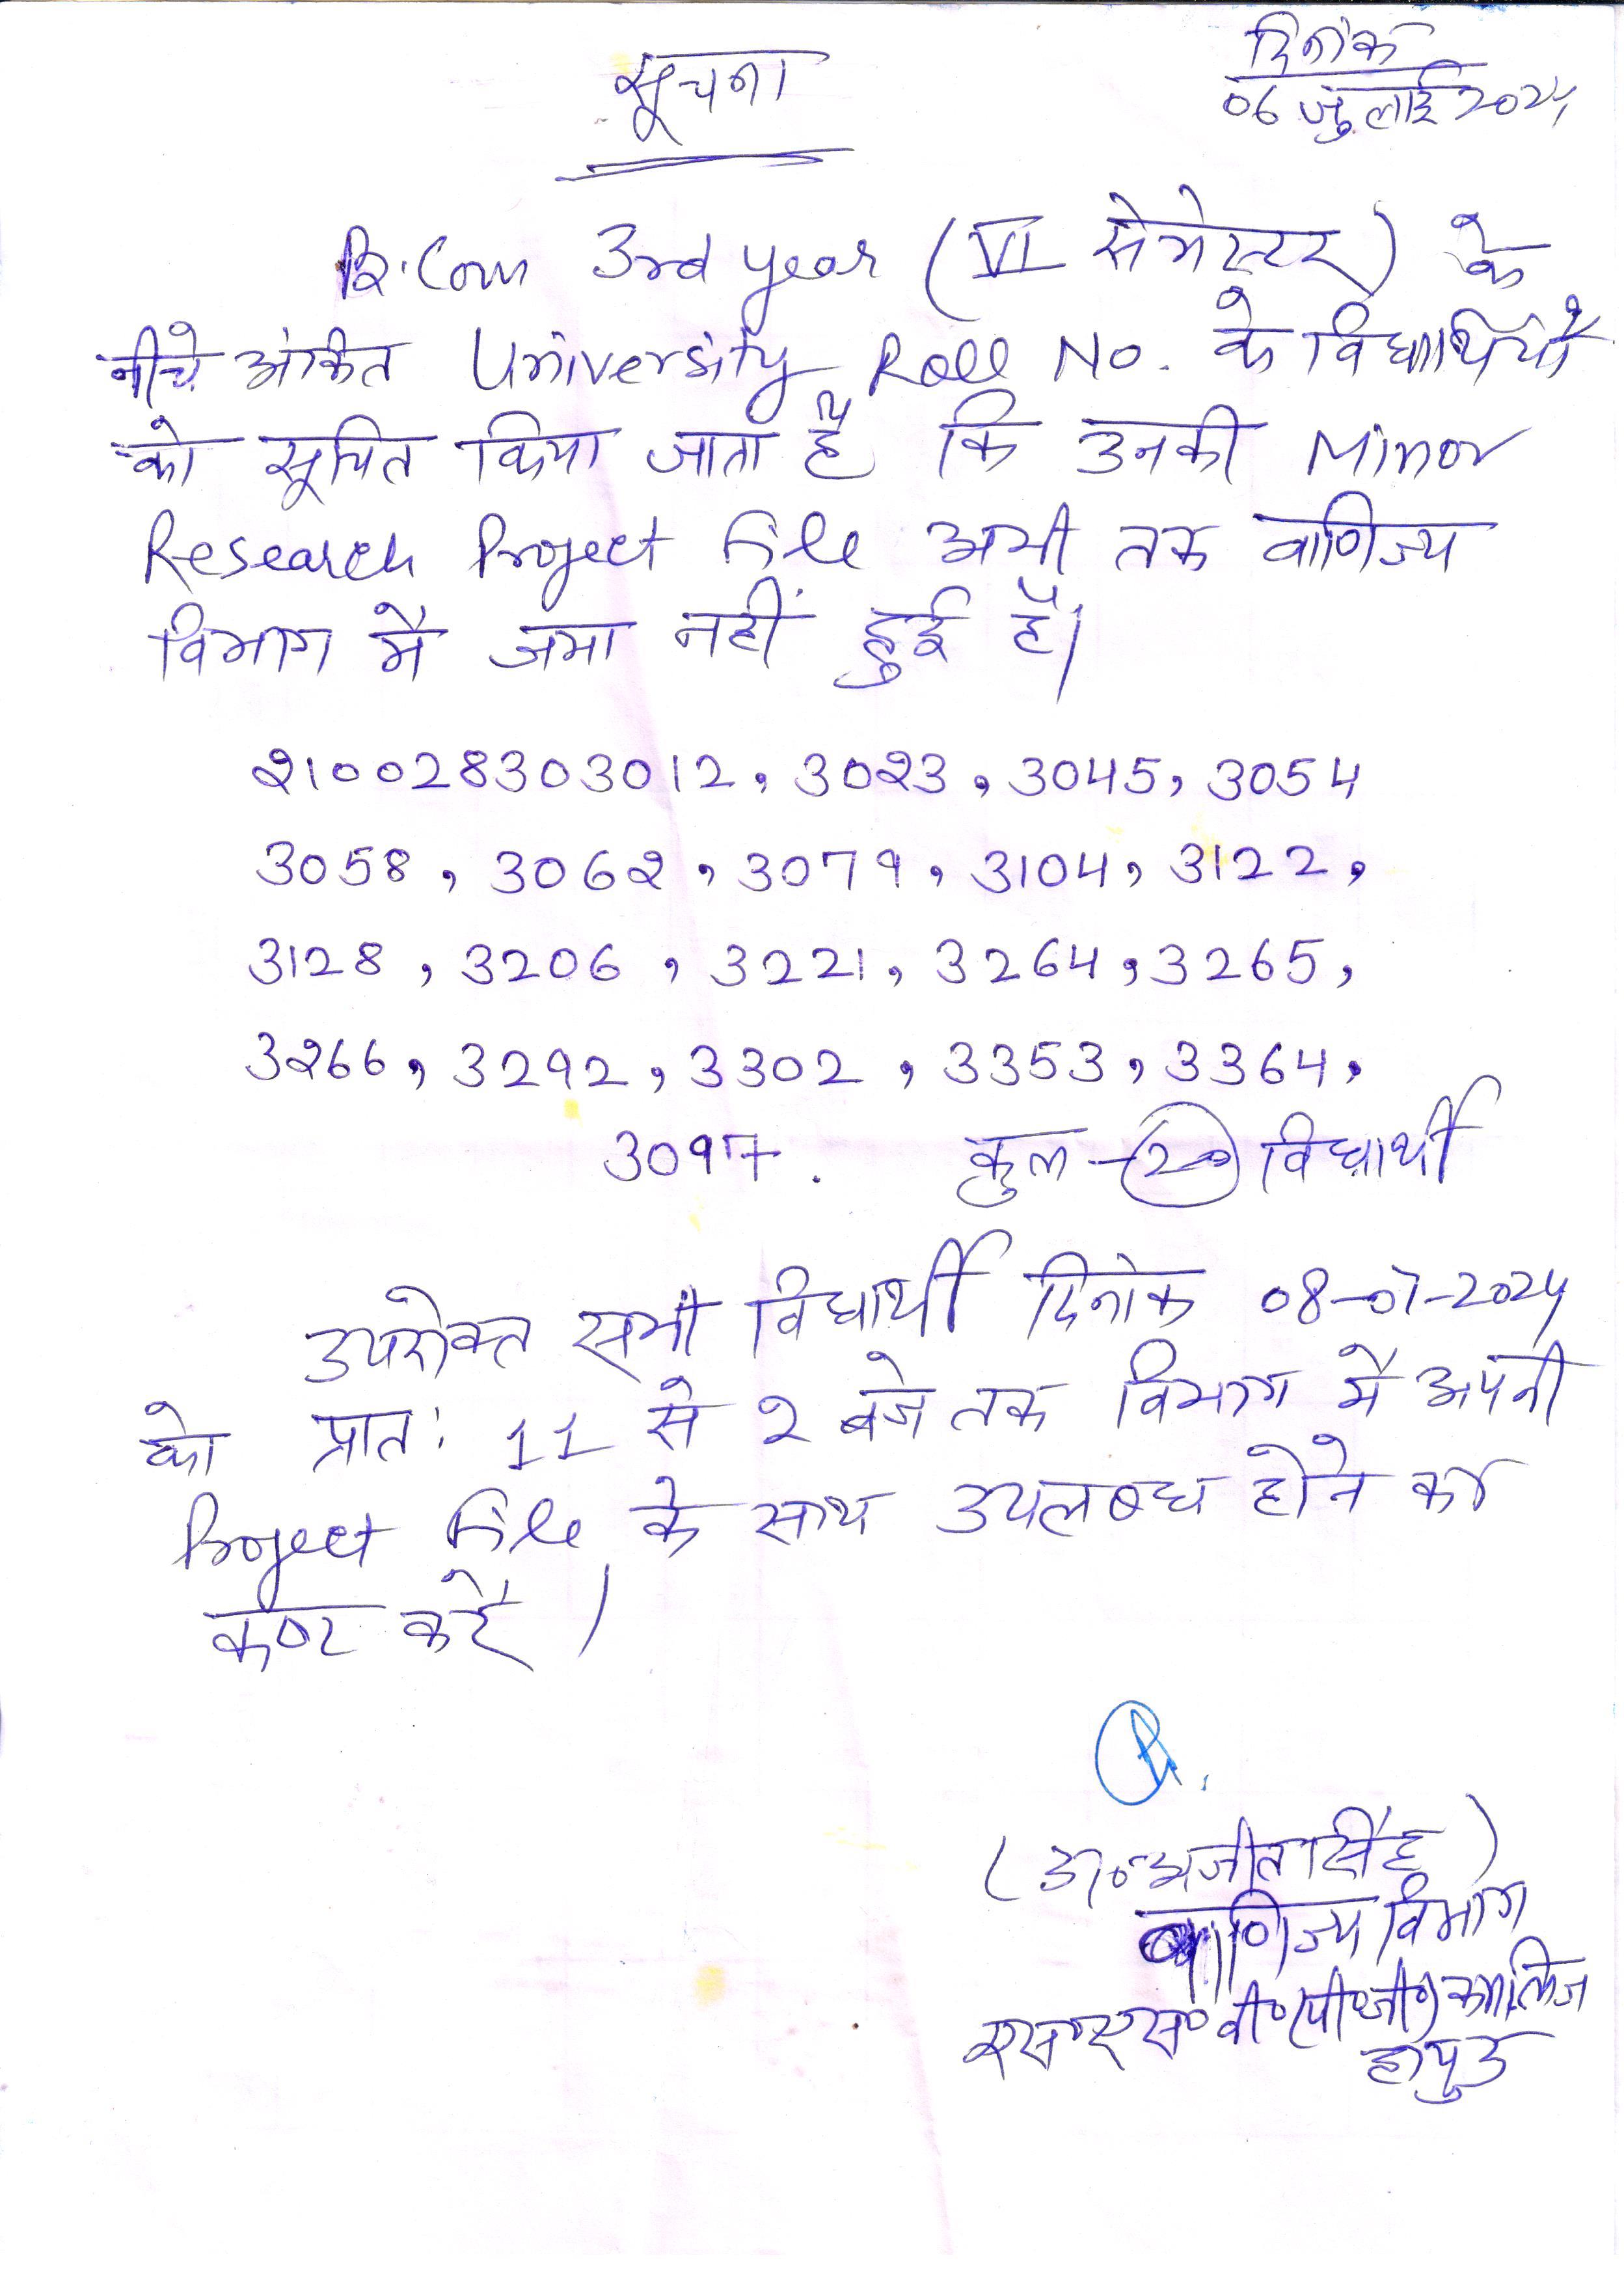 सूचना
दिनांक
06 जुलाई 2024
B.Com 3rd year (VI सेमेस्टर) के
नीचे अंकित University Roll No. के विद्यार्थियों
को सूचित किया जाता है कि उनकी Minor
Research Project File अभी तक वाणिज्य
विभाग में जमा नहीं हुई है।
210028303012, 3023, 3045, 3054
3058, 3062, 3079, 3104, 3122,
3128, 3206, 3221, 3264, 3265,
3266, 3292, 3302, 3353, 3364,
3097. कुल - 20 विद्यार्थी
उपरोक्त सभी विद्यार्थी दिनांक 08-07-2024
को प्रातः 11 से 2 बजे तक विभाग में अपनी
Project File के साथ उपलब्ध होने का
कष्ट करें।
(डा० अजीत सिंह)
वाणिज्य विभाग
एस०एस०वी० (पी०जी०) कालिज
हापुड़